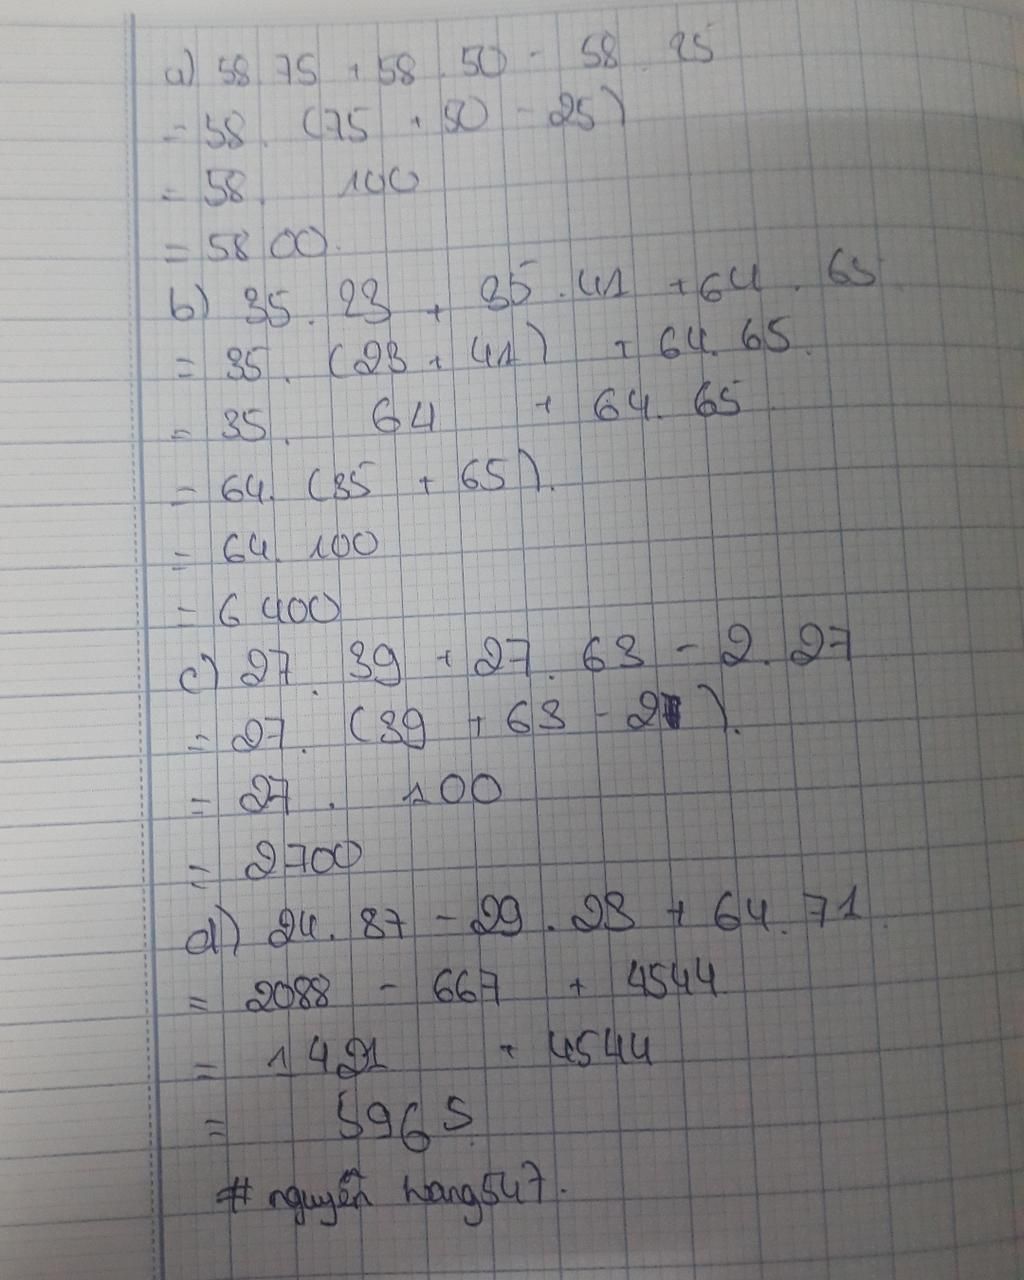 a) 58 75 + 58 . 50 - 58 . 25
= 58 . (75 + 50 - 25)
= 58 . 100
= 5800.
b) 35 . 23 + 35 . 41 + 64 . 65
= 35 . (23 + 41) + 64 . 65.
= 35 . 64 + 64 . 65
= 64 . (35 + 65).
= 64 . 100
= 6400
c) 27 . 39 + 27 . 63 - 2 . 27
= 27 . (39 + 63 - 2).
= 27 . 100
= 2700
d) 24 . 87 - 29 . 23 + 64 . 71.
= 2088 - 667 + 4544
= 1421 + 4544
= 5965.
# nguyễn hang547.